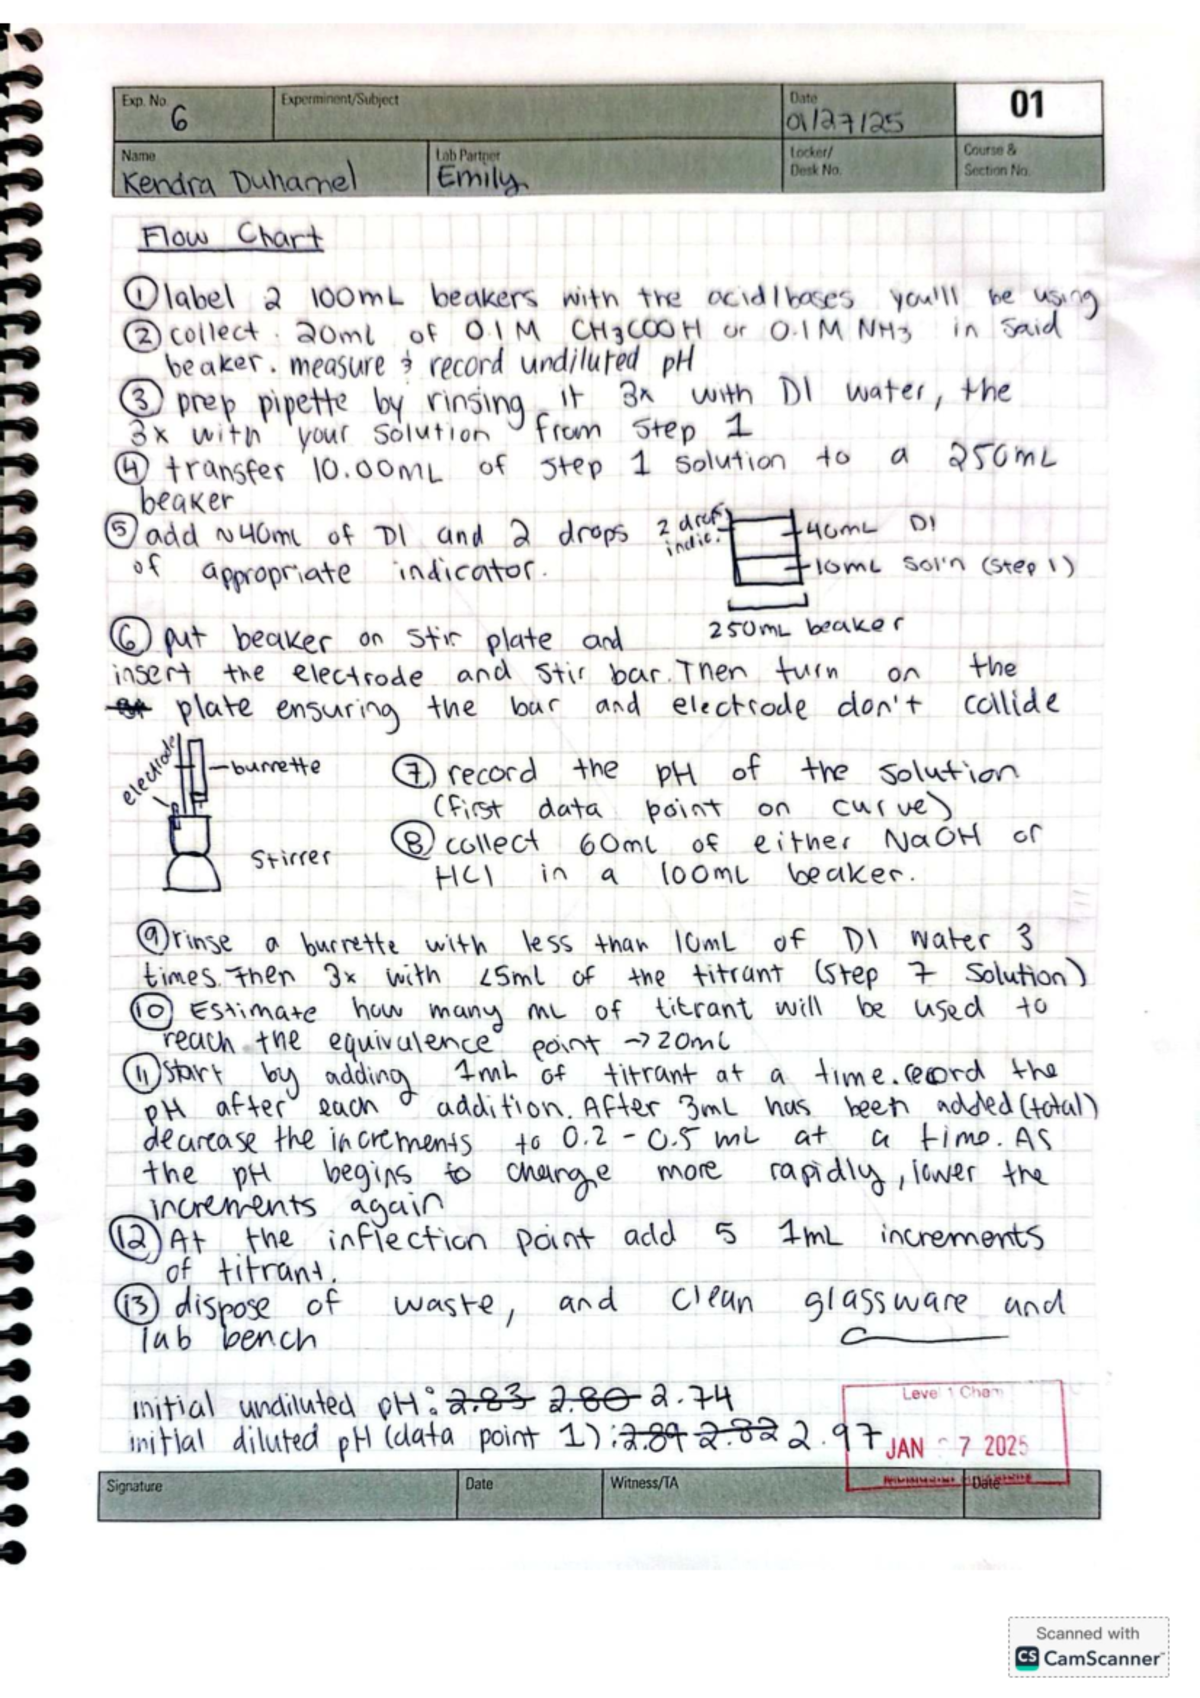 Exp. No. 6 Experminent/Subject Date 01/27/25 01
Name Kendra Duhamel Lab Partner Emily Locker/ Desk No. Course & Section No.
Flow Chart
① label 2 100mL beakers with the acid/bases you'll be using
② collect 20ml of 0.1M CH3COOH or 0.1M NH3 in said
beaker. measure & record undiluted pH
③ prep pipette by rinsing it 3x with DI water, the
3x with your solution from step 1
④ transfer 10.00mL of step 1 solution to a 250mL
beaker
⑤ add ~40ml of DI and 2 drops
of appropriate indicator.
2 drops indic.
40mL DI
10mL sol'n (step 1)
250mL beaker
⑥ put beaker on stir plate and
insert the electrode and stir bar. Then turn on the
plate ensuring the bar and electrode don't collide
electrode
burrette
Stirrer
⑦ record the pH of the solution
(first data point on curve)
⑧ collect 60mL of either NaOH or
HCl in a 100mL beaker.
⑨ rinse a burrette with less than 10mL of DI water 3
times. Then 3x with <5ml of the titrant (step 7 solution)
⑩ Estimate how many mL of titrant will be used to
reach the equivalence point → 20mL
⑪ start by adding 1mL of titrant at a time. record the
pH after each addition. After 3mL has been added (total)
decrease the increments to 0.2 - 0.5 mL at a time. As
the pH begins to change more rapidly, lower the
increments again
⑫ At the inflection point add 5 1mL increments
of titrant.
⑬ dispose of waste, and clean glassware and
lab bench
initial undiluted pH: 2.83 2.80 2.74
initial diluted pH (data point 1): 2.89 2.82 2.97
Level 1 Chem
JAN 7 2025
Signature Date Witness/TA Date
Scanned with
CS CamScanner